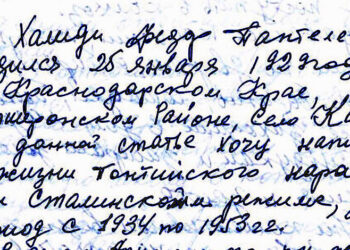 Халиди Федор Пантеле
дился 25 января 1929год
Краснодарском Крае,
шеронском Районе, село Ка
данной статье хочу напи
жизни Понтийского наро
и Сталинском режиме,
иод с 1934 по 1953 гг.